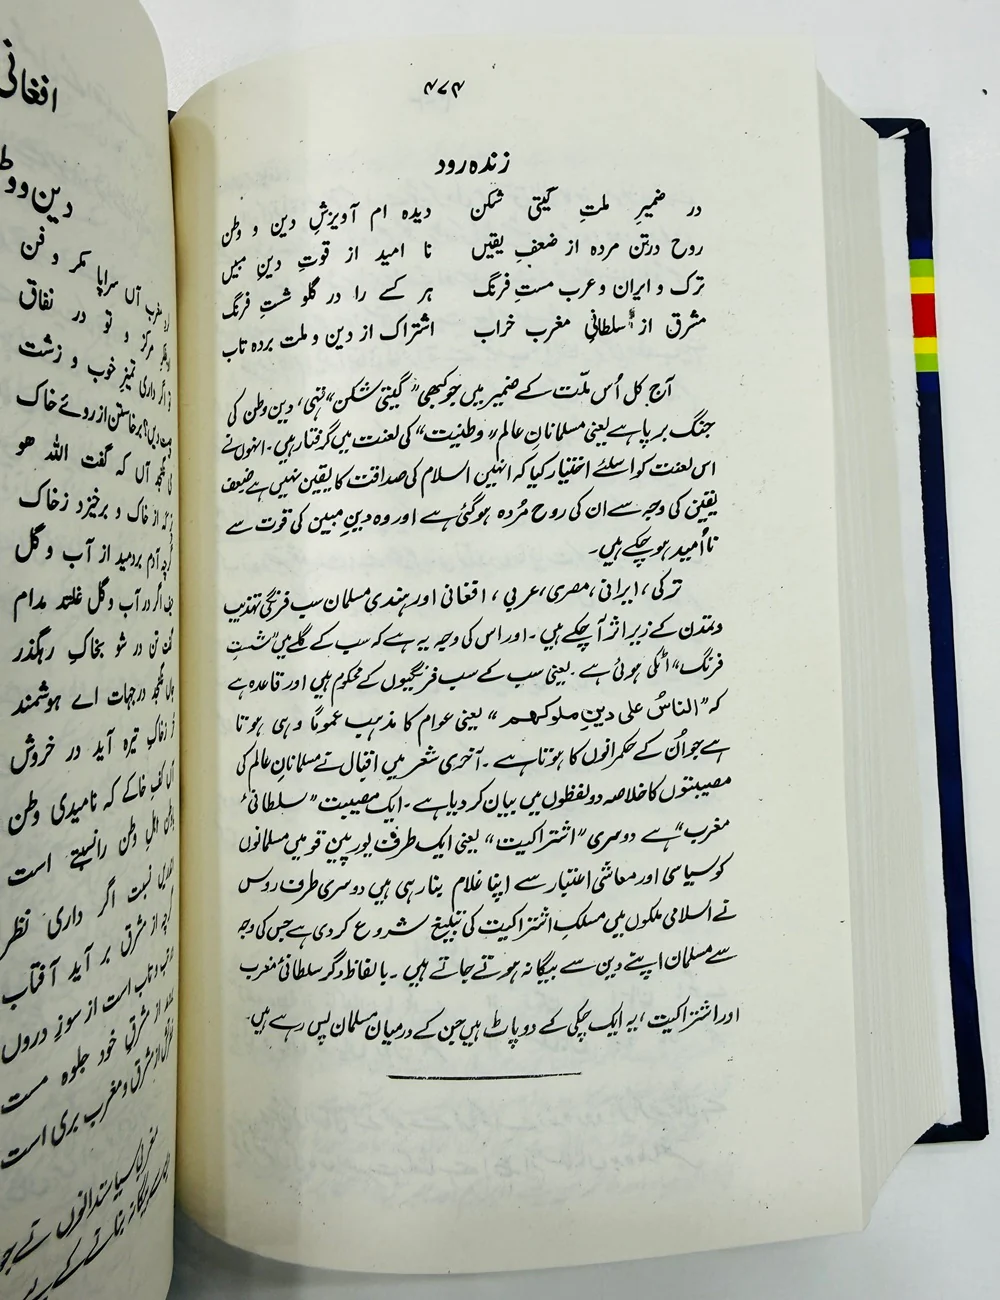 ۴۷۴
زندہ رود
در ضمیرِ ملتِ گیتی شکن دیدہ ام آویزشِ دین و وطن
روح درتن مردہ از ضعفِ یقیں نا امید از قوتِ دینِ مبیں
ترک و ایران و عرب مستِ فرنگ ہر کسے را در گلو شستِ فرنگ
مشرق از سلطانیِ مغرب خراب اشتراک از دین و ملت بردہ تاب
آج کل اُس ملّت کے ضمیر میں جو کبھی "گیتی شکن" تھی، دین وطن کی
جنگ برپا ہے یعنی مسلمانانِ عالم "وطنیت" کی لعنت میں گرفتار ہیں۔ انہوں نے
اس لعنت کو اسلئے اختیار کیا کہ انہیں اسلام کی صداقت کا یقین نہیں ہے ضعف
یقین کی وجہ سے ان کی روح مُردہ ہو گئی ہے اور وہ دینِ مبین کی قوت سے
نا اُمید ہو چکے ہیں۔
ترکی، ایرانی، مصری، عربی، افغانی اور ہندی مسلمان سب فرنگی تہذیب
و تمدن کے زیر اثر آ چکے ہیں۔ اور اس کی وجہ یہ ہے کہ سب کے گلے میں "شستِ
فرنگ" اٹکی ہوئی ہے۔ یعنی سب کے سب فرنگیوں کے محکوم ہیں اور قاعدہ ہے
کہ "الناسُ علی دینِ ملوکہم" یعنی عوام کا مذہب عموماً وہی ہوتا
ہے جو اُن کے حکمرانوں کا ہوتا ہے۔ آخری شعر میں اقبال نے مسلمانانِ عالم کی
مصیبتوں کا خلاصہ دو لفظوں میں بیان کر دیا ہے۔ ایک مصیبت "سلطانیٔ
مغرب" ہے دوسری "اشتراکیت" یعنی ایک طرف یورپین قومیں مسلمانوں
کو سیاسی اور معاشی اعتبار سے اپنا غلام بنا رہی ہیں دوسری طرف روس
نے اسلامی ملکوں میں مسلکِ اشتراکیت کی تبلیغ شروع کر دی ہے جس کی وجہ
سے مسلمان اپنے دین سے بیگانہ ہوتے جاتے ہیں۔ بالفاظ دگر سلطانیٔ مغرب
اور اشتراکیت، یہ ایک چکی کے دو پاٹ ہیں جن کے درمیان مسلمان پس رہے ہیں۔
افغانی
دین و وط
آں سراپا مکر و فن
مرکز و تو در نفاق
اگر داری تمیزِ خوب و زشت
دیں؟ برخاستن از روئے خاک
آں کہ گفت اللہ ھو
از خاک و برخیزد زخاک
آدم بردمید از آب و گل
اگر در آب و گل غلتد مدام
تن در شو بخاکِ رہگذر
در جہات اے ہوشمند
خاکِ تیرہ آید در خروش
کفِ خاکے کہ نامیدی وطن
اہلِ وطن را نسبتے است
نسبت اگر داری نظر
از مشرق بر آید آفتاب
تاب است از سوزِ دروں
از مشرقِ خود جلوہ مست
از مشرق و مغرب بری است
سیاستدانوں نے جو
بیگانہ بنانے کے